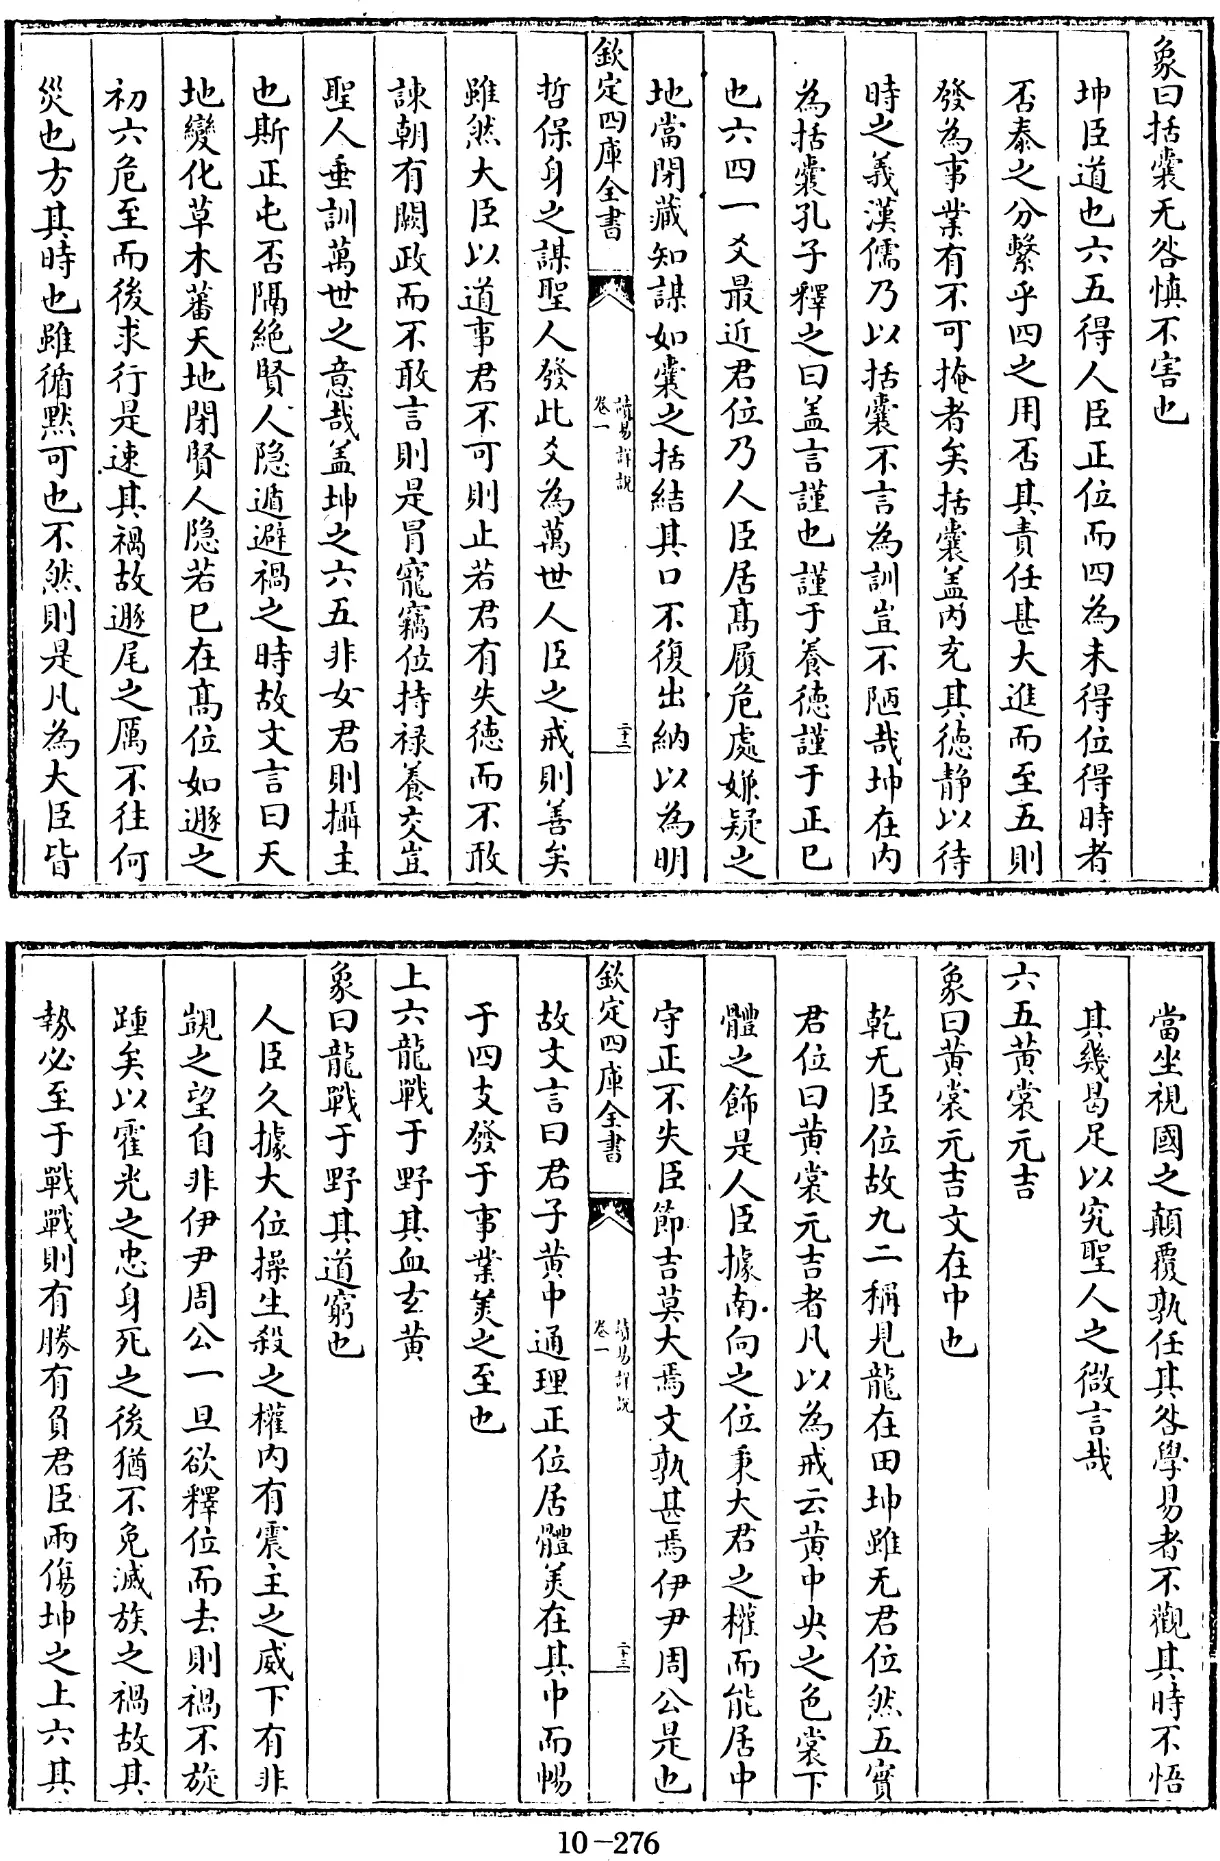 象曰括囊无咎慎不害也
坤臣道也六五得人臣正位而四為未得位得時者
否泰之分繫乎四之用否其責任甚大進而至五則
發為事業有不可掩者矣括囊盖內充其徳靜以待
時之義漢儒乃以括囊不言為訓豈不陋哉坤在內
為括囊孔子釋之曰盖言謹也謹于養徳謹于正已
也六四一爻最近君位乃人臣居髙履危處嫌疑之
地當閉藏知謀如囊之括結其口不復出納以為明
欽定四庫全書
讀易詳說
卷一
二十二
哲保身之謀聖人發此爻為萬世人臣之戒則善矣
雖然大臣以道事君不可則止若君有失徳而不敢
諫朝有闕政而不敢言則是冒寵竊位持禄養交豈
聖人垂訓萬世之意哉盖坤之六五非女君則攝主
也斯正屯否隔絶賢人隐遁避禍之時故文言曰天
地變化草木蕃天地閉賢人隐若已在髙位如遯之
初六危至而後求行是速其禍故遯尾之厲不往何
災也方其時也雖循黙可也不然則是凡為大臣皆
當坐視國之顛覆孰任其咎學易者不觀其時不悟
其幾曷足以究聖人之微言哉
六五黄裳元吉
象曰黄裳元吉文在中也
乾无臣位故九二稱見龍在田坤雖无君位然五實
君位曰黄裳元吉者凡以為戒云黄中央之色裳下
體之飾是人臣據南向之位秉大君之權而能居中
守正不失臣節吉莫大焉文孰甚焉伊尹周公是也
欽定四庫全書
讀易詳說
卷一
二十三
故文言曰君子黄中通理正位居體美在其中而暢
于四支發于事業美之至也
上六龍戰于野其血玄黄
象曰龍戰于野其道窮也
人臣久據大位操生殺之權內有震主之威下有非
覬之望自非伊尹周公一旦欲釋位而去則禍不旋
踵矣以霍光之忠身死之後猶不免滅族之禍故其
勢必至于戰戰則有勝有負君臣兩傷坤之上六其
10-276